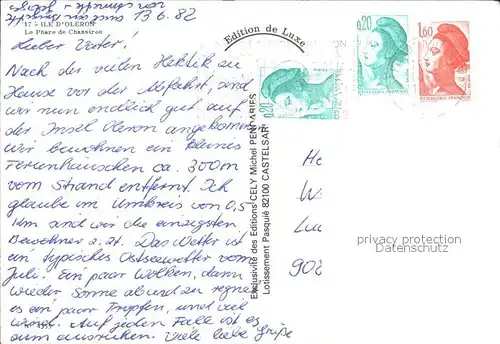 13.6.82
17 - ILE D'OLERON
Le Phare de Chassiron
Edition de Luxe
Lieber Vater!
Nach der vielen Hektik zu
Hause vor der Abfahrt, sind
wir nun endlich gut auf
der Insel Oleron angekommen
Wir bewohnen ein kleines
Ferienhäuschen ca. 300m
vom Strand entfernt. Ich
glaube im Umkreis von 0,5
Km sind wir die einzigsten
Bewohner z. Zt. Das Wetter ist
ein typisches Ostseewetter vom
Juli. Ein paar Wolken, dann
wieder Sonne ab und zu regnet
es ein paar Tropfen, und viel
Wind. Auf jeden Fall ist es
zum ausruhen. Viele liebe Grüße
Exclusivité des Editions CELY Michel PENDARIES
Lotissement Pasquié 82100 CASTELSAR
0,20
0,20
1,60
REPUBLIQUE FRANÇAISE
privacy protection
DSGVO
902